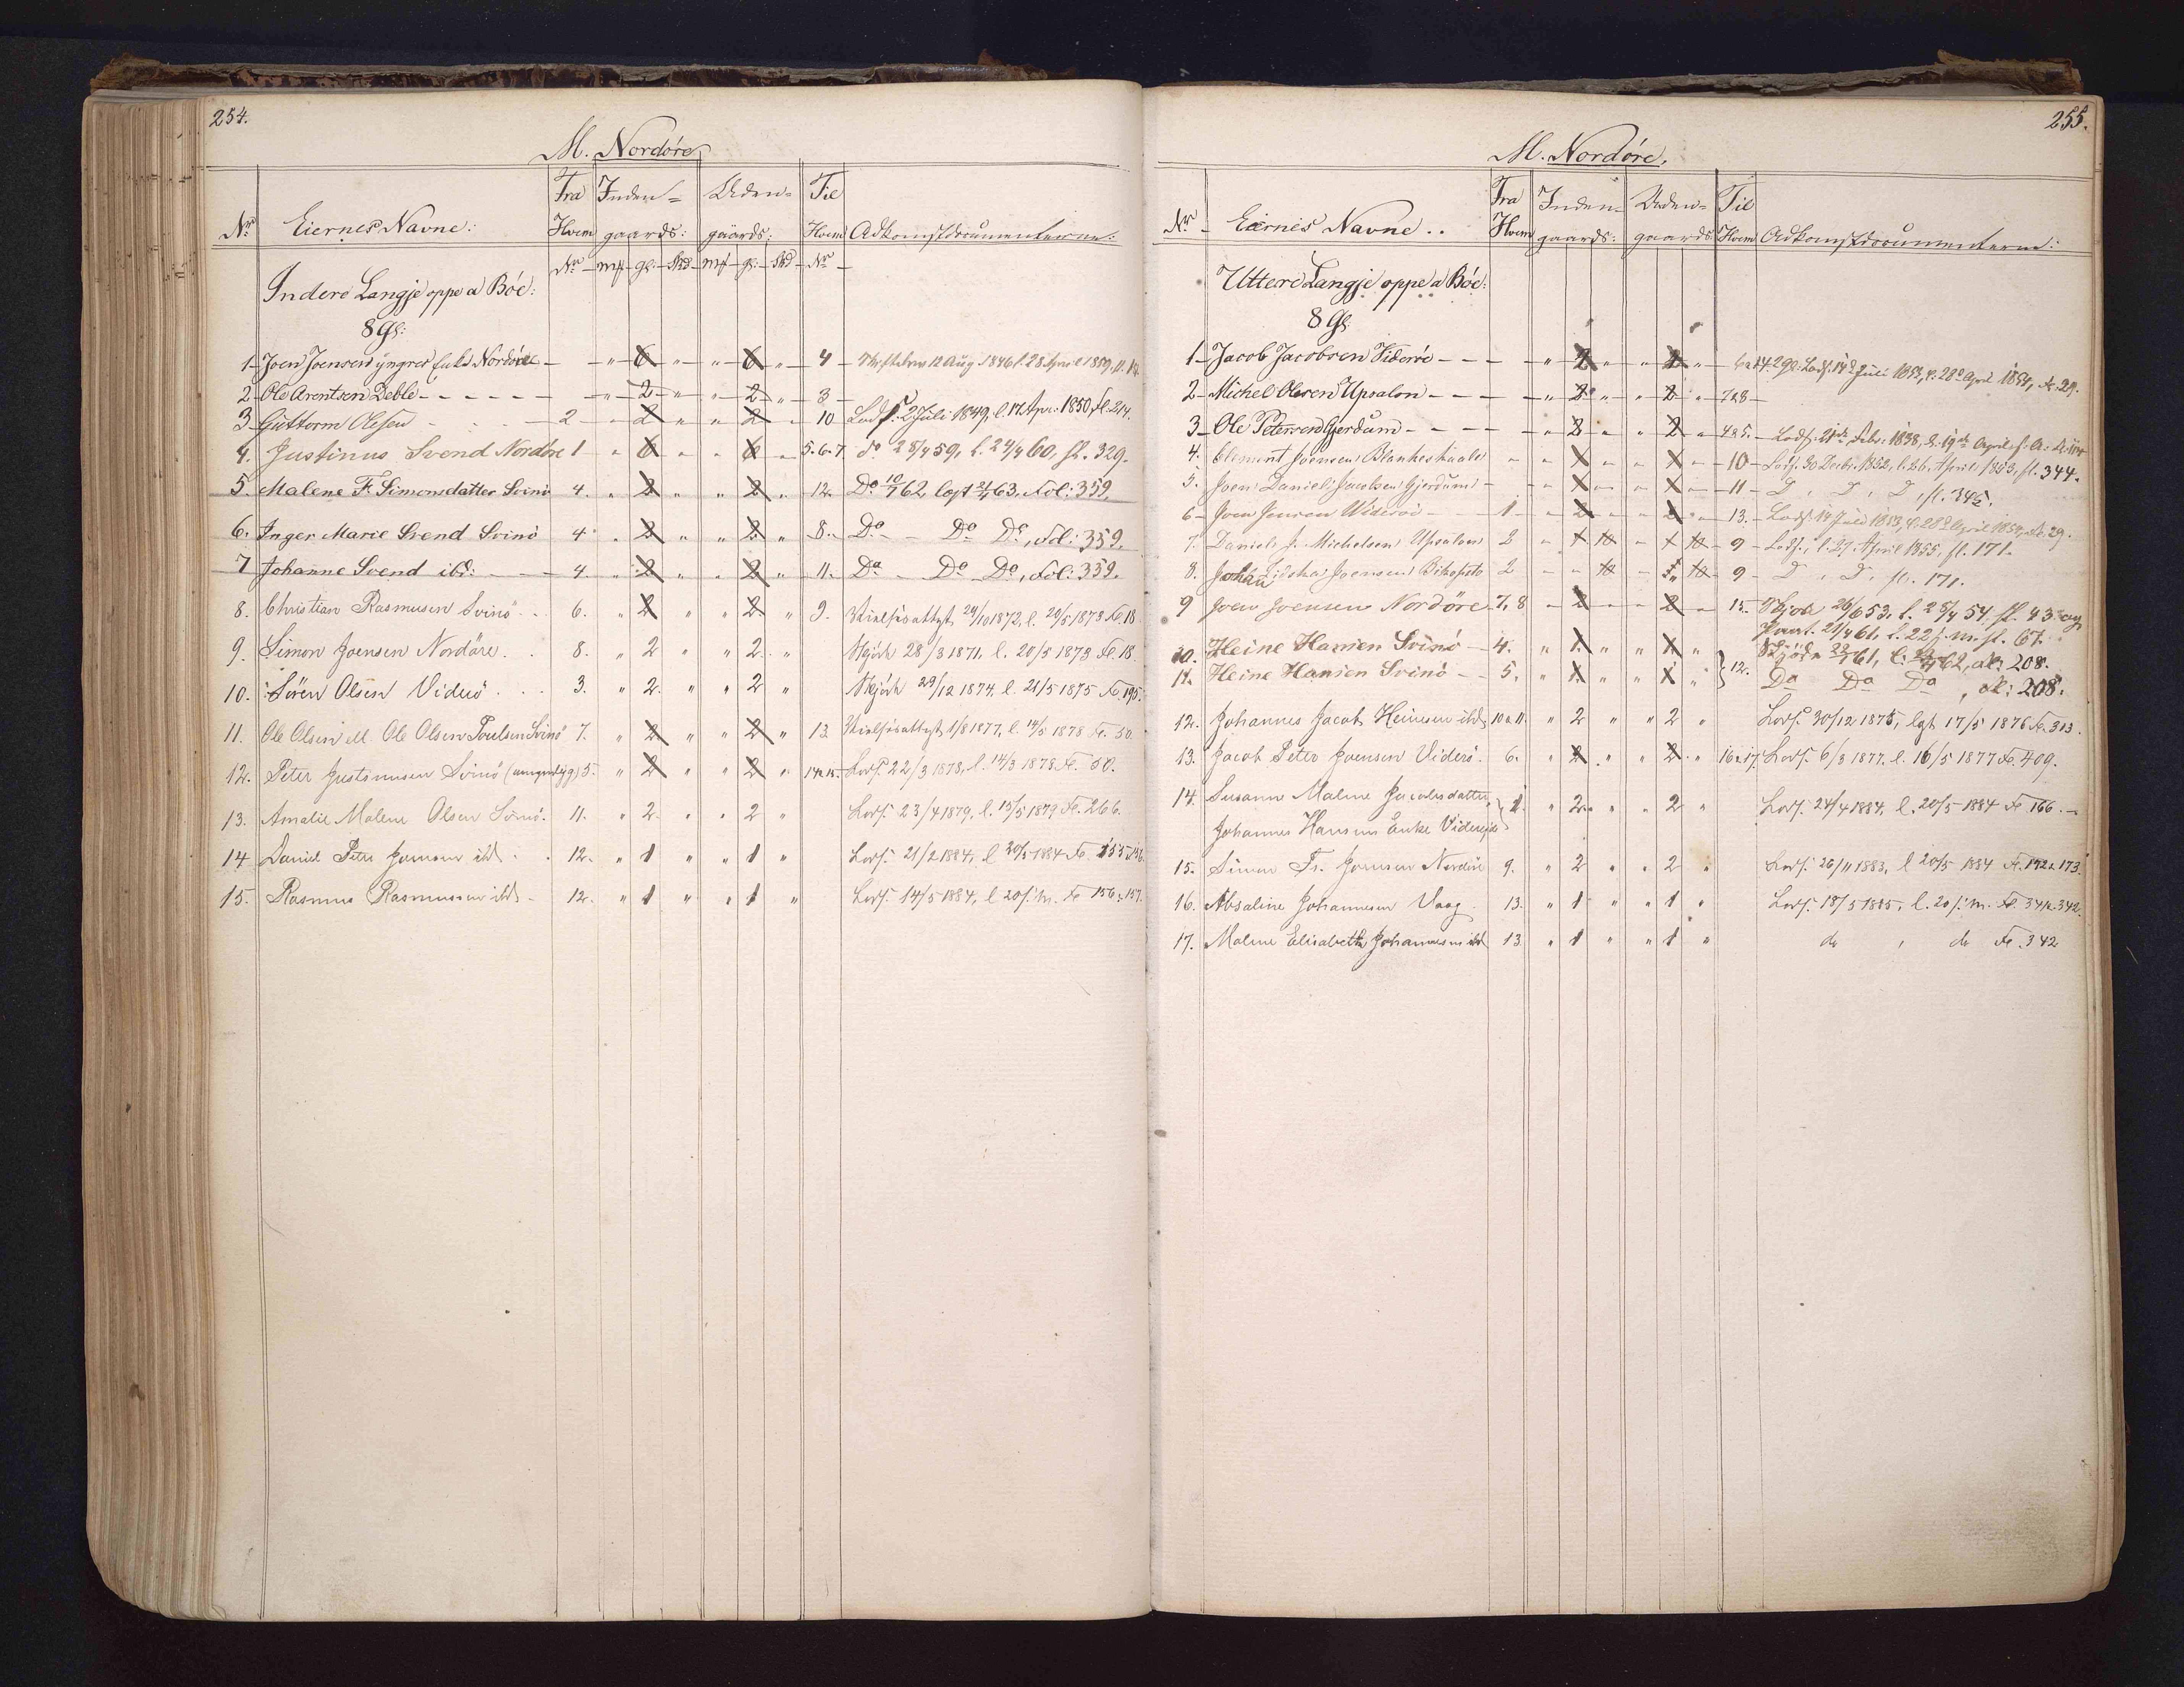 254.
M. Nordöre
Nr. Eiernes Navne: Fra Hvem Nr Inden= gaards: mk gl: Skd Uden= gaards: mk gl: Skd Til Hvem Nr Adkomstdocumenterne:
Indere Langje oppe a Böe:
8 Gl:
1 Joen Joensens yngres Enke Nordöre " 6 " " 6 " 4 Skiftebrev 12 Aug: 1846 l. 28 April 1859,
2 Ole Arentsen Deble " 2 " " 2 " 3
3 Guttorm Olesen 2 " 2 " " 2 " 10 Lods. 2 Juli 1849, l. 17 Apr. 1850, fl. 214.
4. Justinus Svend Nordöre 1 " 6 " " 6 " 5.6.7 do 28/4 59, l. 24/4 60, fl. 329.
5. Malene F. Simonsdatter Svinö 4. " 2 " " 2 " 12. Do 10/7 62 lagt 21/4 63, Fol: 359.
6. Inger Marie Svend Svinö 4 " 2 " " 2 " 8. Do Do Do, Fol: 359.
7 Johanne Svend ibd: 4. " 2 " " 2 " 11. Do Do Do, Fol: 359.
8. Christian Rasmusen Svinö 6. " 2 " " 2 " 9. Vielsesattest 29/10 1872, l. 20/5 1873 Fl. 18
9. Simon Joensen Nordöre 8. " 2 " " 2 " Skjöde 28/3 1871, l. 20/5 1873 Fl. 18.
10. Sören Olsen Viderö 3. " 2 " " 2 " Skjöde 29/12 1874, l. 21/5 1875 Fl. 195.
11. Ole Olsen ell. Ole Olsen Poulsen Svinö 7. " 2 " " 2 " 13. Vielsesattest 1/8 1877, l. 14/5 1878 Fl. 50.
12. Peter Justinusen Svinö (umyndig) 5. " 2 " " 2 " 14 & 15. Lods. 22/3 1878, l. 14/5 1878 Fl. 50.
13. Amalie Malene Olsen Svinö. 11. " 2 " " 2 " Lods. 23/4 1879, l. 15/5 1879 Fl. 266.
14 Daniel Peter Joensen ibd. 12. " 1 " " 1 " Lods. 21/2 1884, l 20/5 1884 Fl. 155 & 156.
15. Rasmus Rasmussen ibd. 12. " 1 " " 1 " Lods. 14/5 1884, l 20/s. M. Fl 156 & 157.
255.
M. Nordöre.
Nr. Eiernes Navne.. Fra Hvem Inden= gaards: Uden= gaards Til Hvem Adkomstdocumenterne:
Uttere Langje oppe a Böe:
8 Gl.
1 Jacob Jacobsen Videröe " 2 " " 2 " 6 & 14. 2 gl. Lods. 14d Juli 1853, l. 28d April 1854, fl. 29.
2 Michel Olesen Upsalon " 2 " " 2 " 7 & 8
3 Ole Petersen Gjerdum " 2 " " 2 " 4 & 5. Lods. 21de Febr: 1838, l. 19de April s. A. fl. 104
4. Clement Joensen Blankeskaale " 1 " " 1 " 10 Lods. 30 Decbr. 1852, l. 26. April 1853, fl. 344.
5. Joen Daniel Jacobsen Gjerdum " 1 " " 1 " 11 D, D, D, fl. 345.
6 Joen Jensen Wideröe 1 " 2 " " 2 " 13. Lods. 14 Juli 1853, l. 28de April 1854, fl. 29.
7. Daniel J. Michelsen Upsalon 2 " 1 10 " 1 10 9 Lods., l. 27. April 1855, fl. 171.
8. Johan Joensen 2 " " 10 " " 10 9 D, D, fl. 171.
9 Joen Joensen Nordöre 7, 8 " 2 " " 2 " 15. Skjöde 26/6 53, l. 28/4 54 fl. 43 og
Pant. 21/4 61, l. 22/s. m. fl. 67.
10. Heine Hansen Svinö 4. " 1 " " 1 " Skjöde 61, l. 62, fl: 208.
11. Heine Hansen Svinö 5. " 1 " " 1 " } 12. Do Do Do, fl: 208.
12. Johannes Jacob Heinesen ibd 10 & 11. " 2 " " 2 " Lods. 30/12 1875, lgt 17/5 1876 Fl. 313.
13. Jacob Peter Joensen Viderö. 6. " 2 " " 2 " 16 & 17. Lods. 6/3 1877. l. 16/5 1877 Fl. 409.
14. Susanne Malene Jacobsdatter,
Johannes Hansens Enke Videreide } 1. " 2 " " 2 " Lods. 24/4 1884, l. 20/5 1884 Fl 166.
15. Simon Fr. Joensen Nordöre 9. " 2 " " 2 " Lods. 26/11 1883, l 20/5 1884 Fl. 172 & 173.
16. Absaline Johannesen Vaag 13. " 1 " " 1 " Lods. 18/5 1885, l. 20/s. M. Fl. 341 & 342.
17. Malene Elisabeth Johannesen ibd 13. " 1 " " 1 " do, do Fl. 342